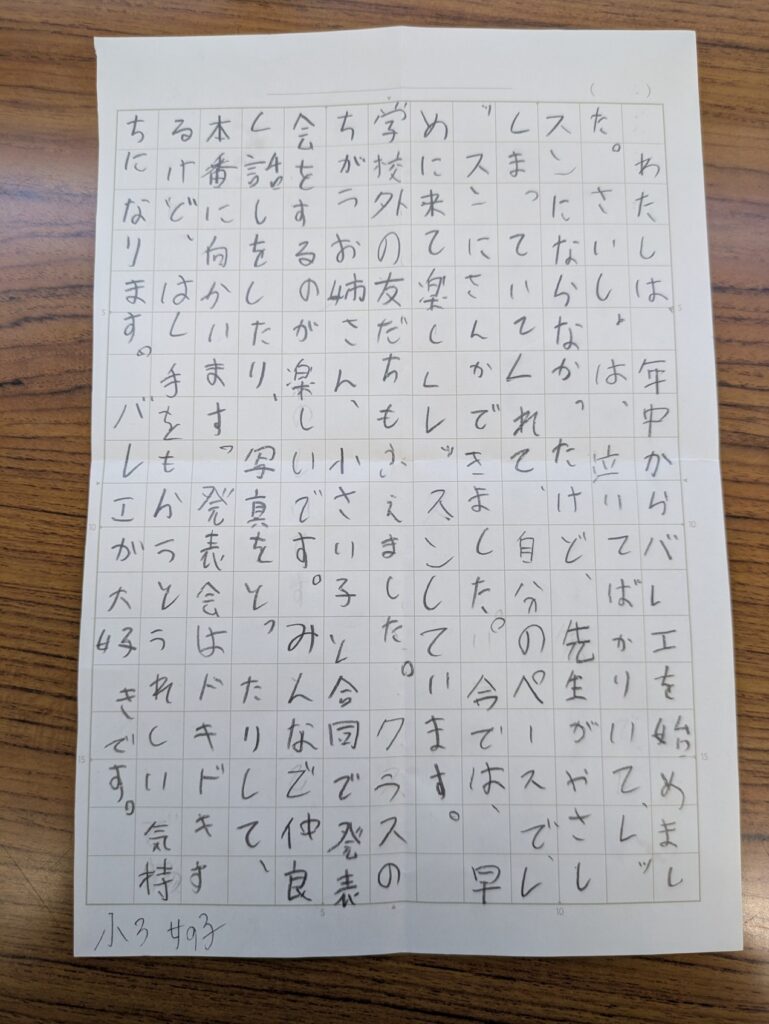 わたしは、年中からバレエを始めまし
た。さいしょは、泣いてばかりいて、レッ
スンにならなかったけど、先生がやさし
くまっていてくれて、自分のペースで、レ
ッスンにさんかできました。今では、早
めに来て楽しくレッスンしています。
学校外の友だちもふえました。クラスの
ちがうお姉さん、小さい子と合同で発表
会をするのが楽しいです。みんなで仲良
く話しをしたり、写真をとったりして、
本番に向かいます。発表会はドキドキす
るけど、はく手をもらうとうれしい気持
ちになります。バレエが大好きです。
小3 女の子